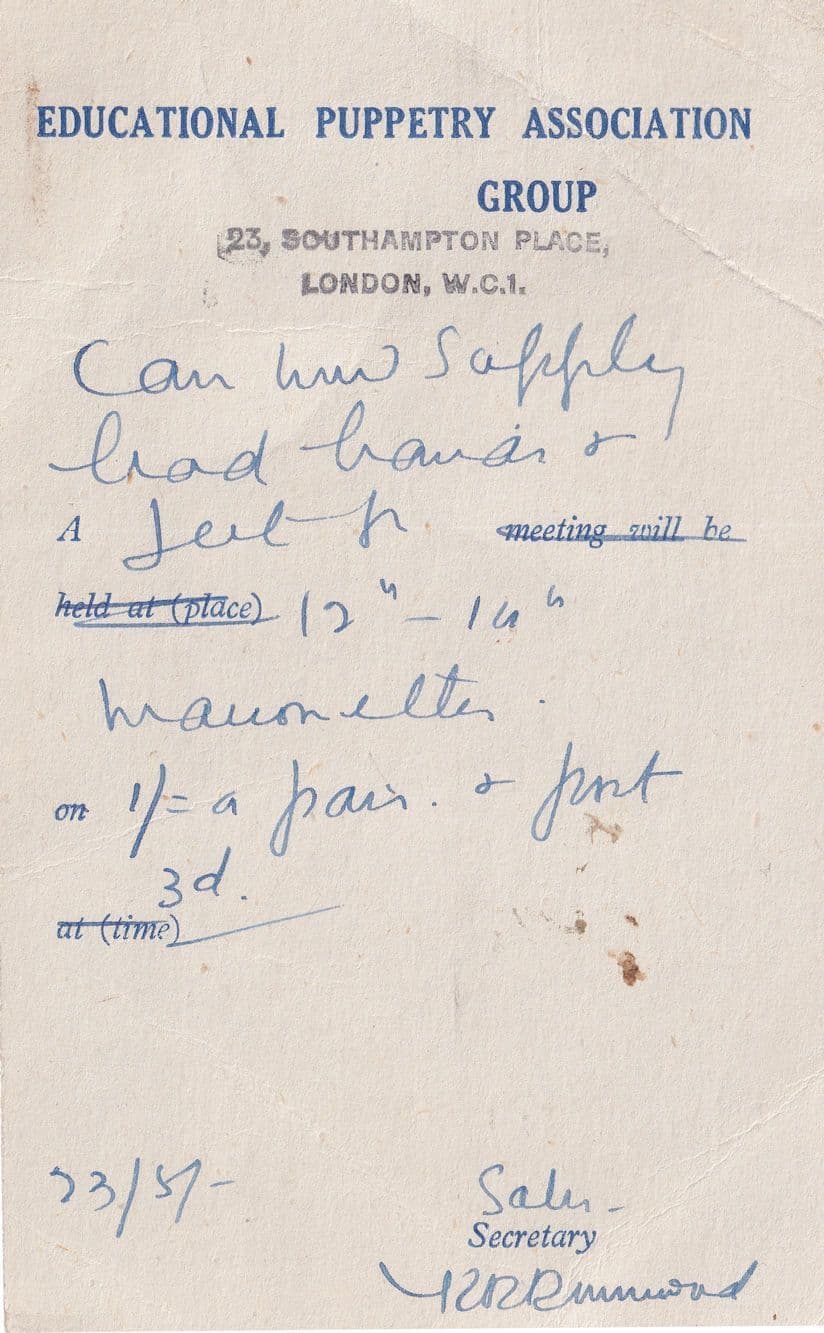 EDUCATIONAL PUPPETRY ASSOCIATION
GROUP
23, SOUTHAMPTON PLACE,
LONDON, W.C.1.
Can now supply
lead hands &
A feet for meeting will be
held at (place) 12" – 14"
marionettes.
on 1/= a pair. & post
3d.
at (time)
23/5/-
Sales -
Secretary